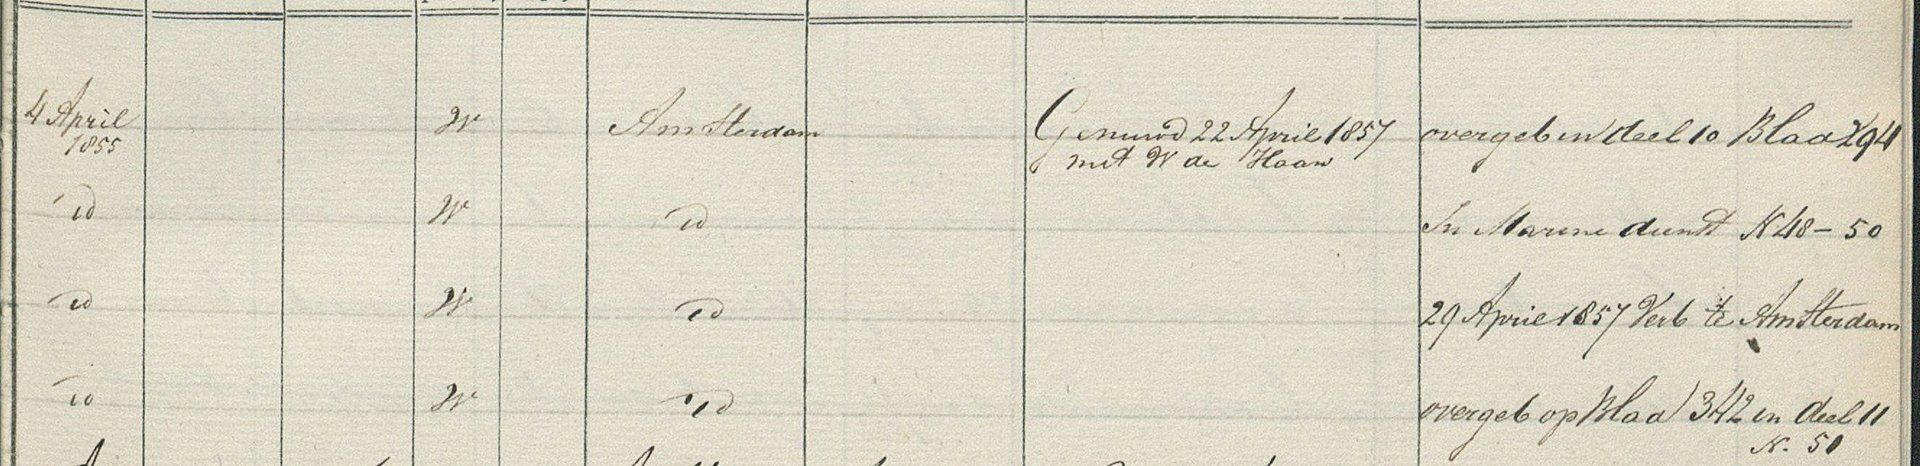 4 April W Amsterdam Gemuwd 22 April 1857 overgeb in deel 10 Blad 294
1855 met W de Haan
id W id In Marine dienst N 48 - 50
id W id 29 April 1857 Verb te Amsterdam
id W id overgeb op Blad 342 in deel 11
N. 50